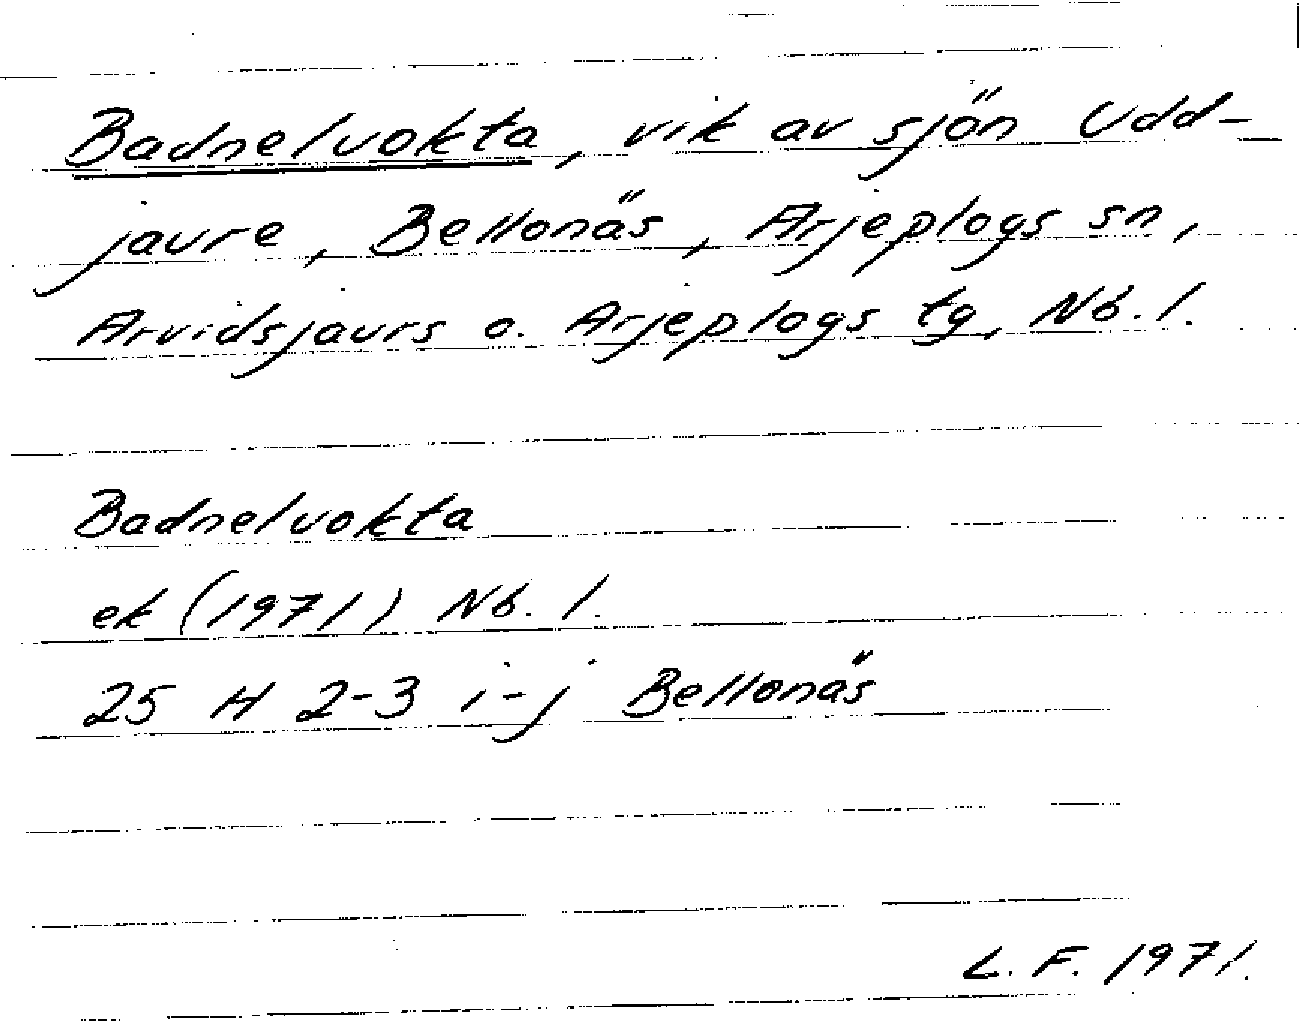 Badneluokta, vik av sjön Udd-
jaure, Bellonäs, Arjeplogs sn,
Arvidsjaurs o. Arjeplogs tg, Nb. l.
Badneluokta
ek (1971) Nb. l.
25 H 2-3 i-j Bellonäs
L. F. 1971.